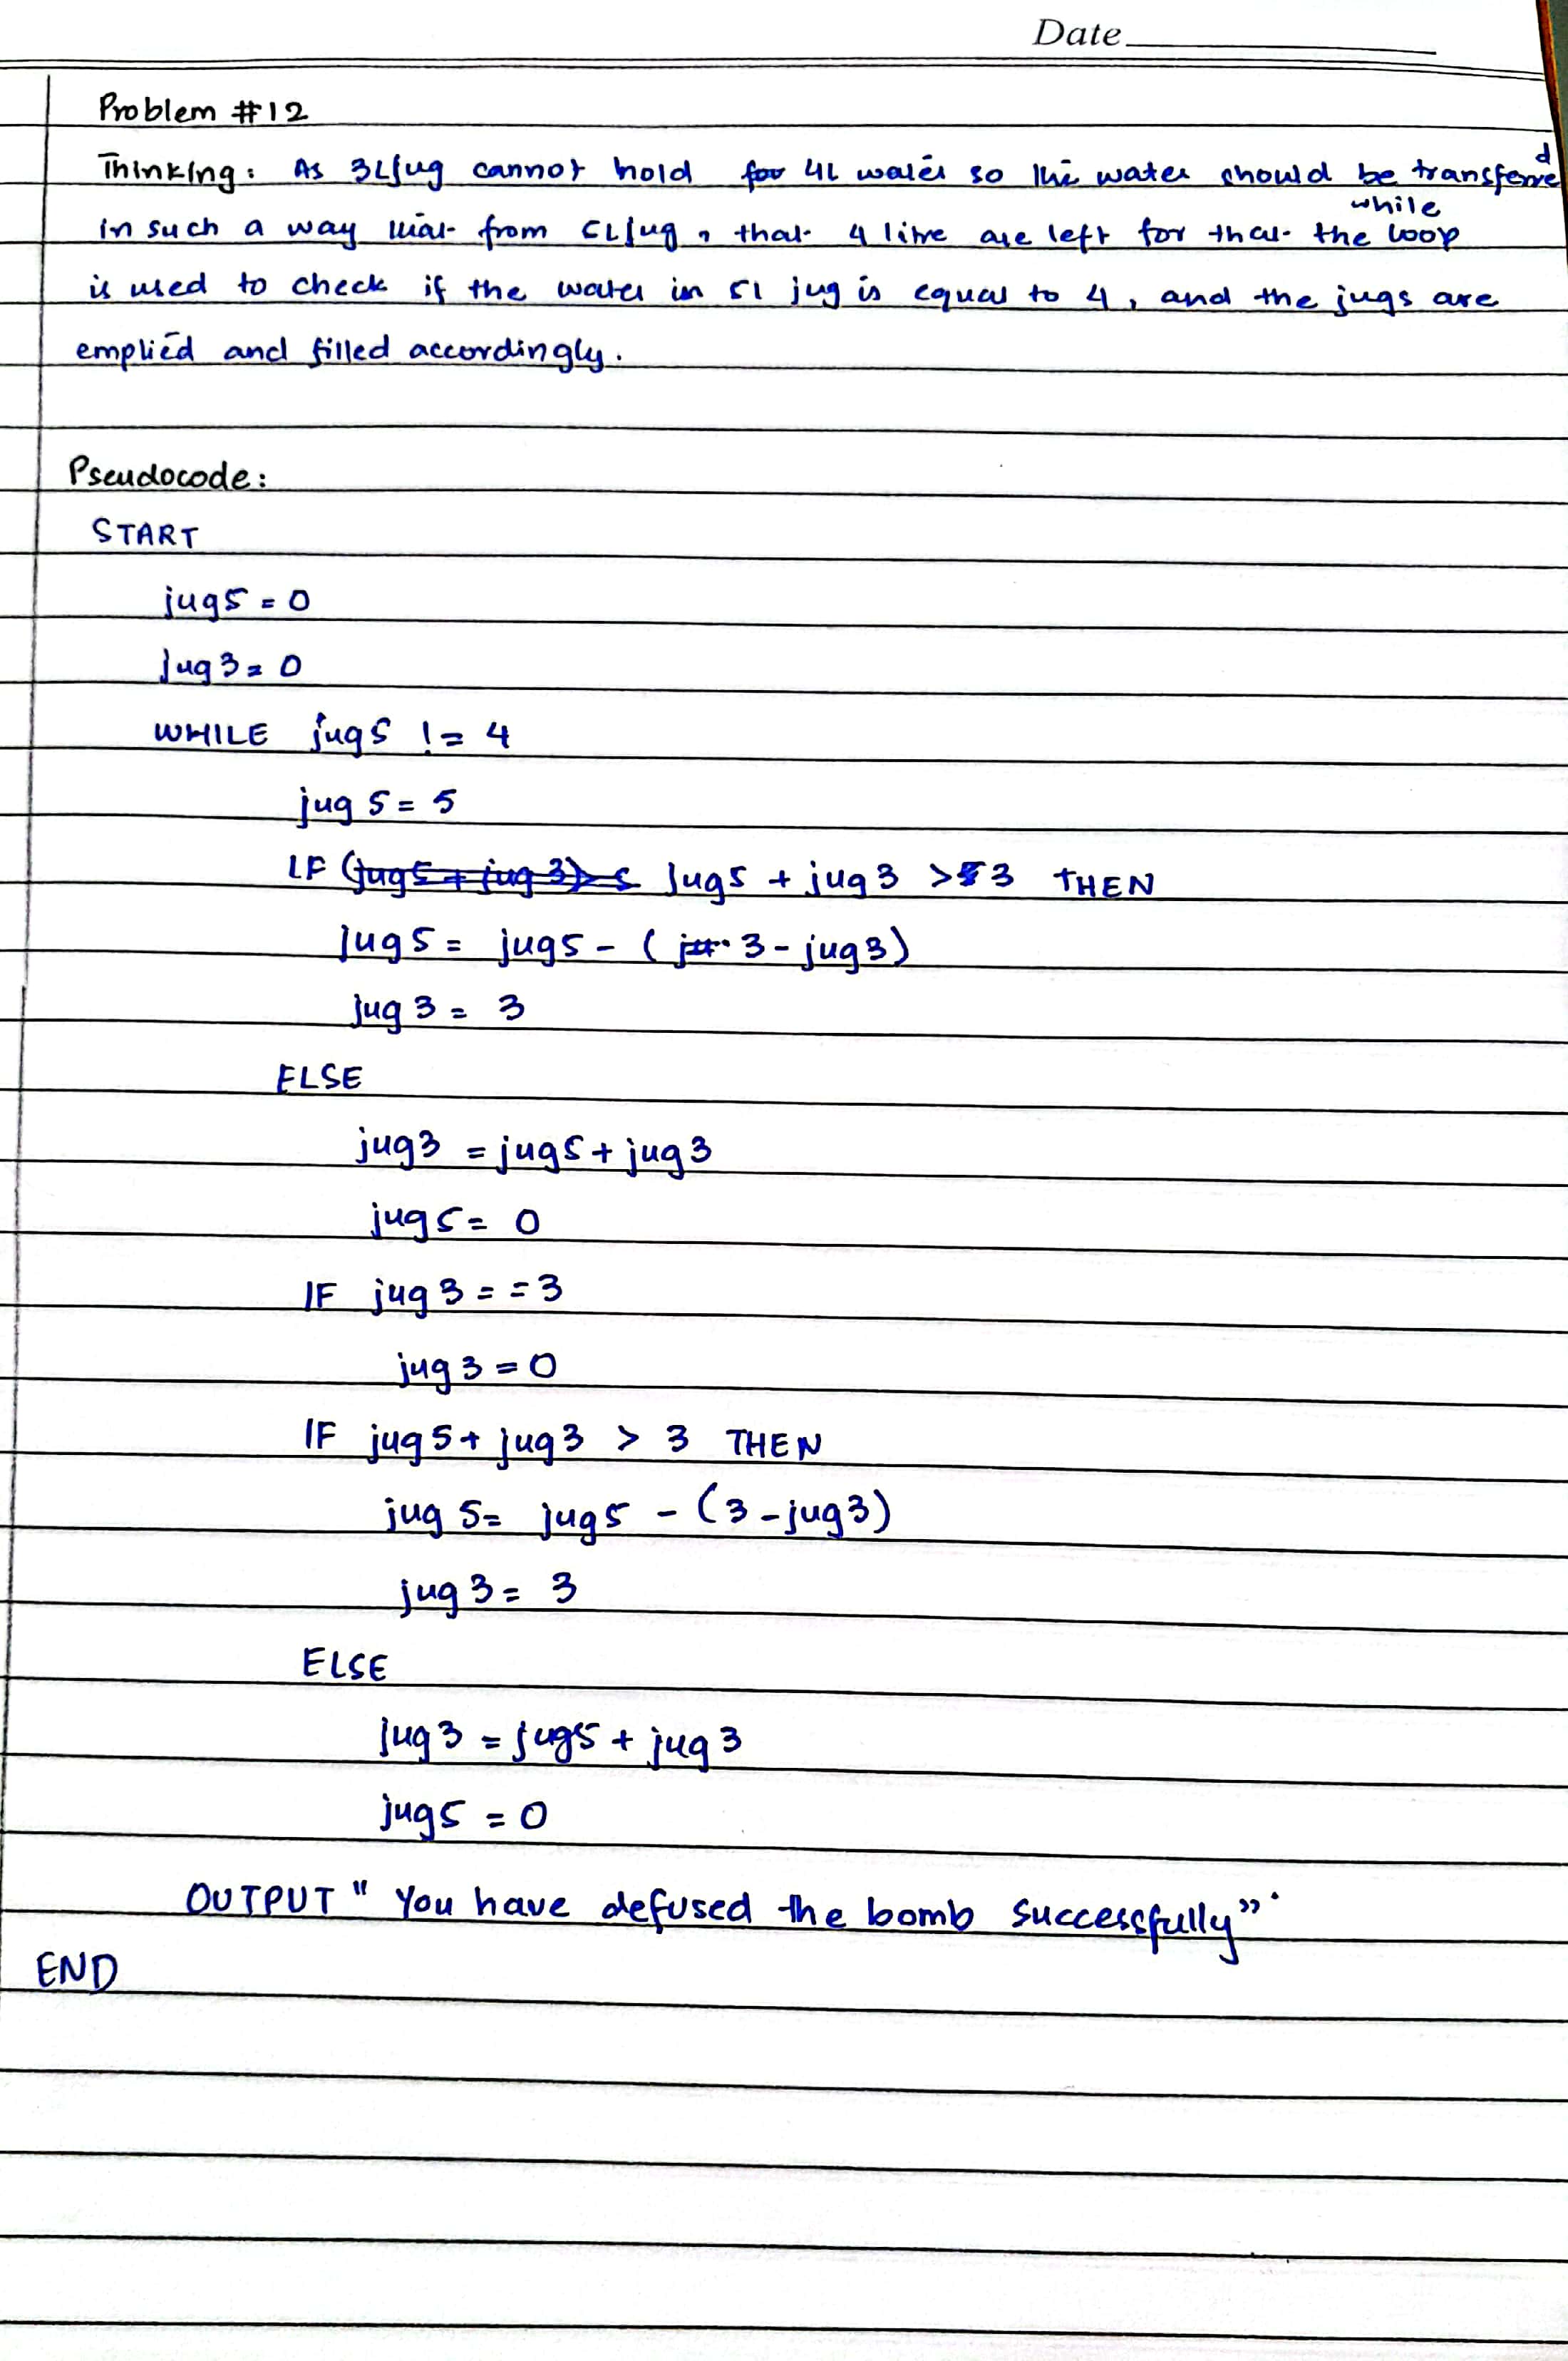 Date
Problem #12
Thinking: As 3L jug cannot hold for 4L water so the water should be transferred
in such a way that from 5L jug, that 4 litre are left for that the while loop
is used to check if the water in 5l jug is equal to 4, and the jugs are
emptied and filled accordingly.
Pseudocode:
START
jug5 = 0
jug3 = 0
WHILE jug5 != 4
jug 5 = 5
IF (jug5 + jug 3) > 5 jug5 + jug3 > 3 THEN
jug5 = jug5 - ( 3 - jug3)
jug 3 = 3
ELSE
jug3 = jug5 + jug3
jug5 = 0
IF jug3 == 3
jug 3 = 0
IF jug5 + jug3 > 3 THEN
jug 5 = jug5 - (3 - jug3)
jug 3 = 3
ELSE
jug3 = jug5 + jug3
jug5 = 0
OUTPUT " You have defused the bomb successfully".
END